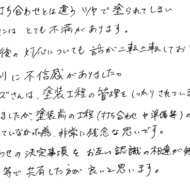 打ち合わせとは違うツヤで塗られてしまい
には とても不満が あります。
後の 対応についても 話が二転三転しており
りに不信感がありました。
ズさんは、塗装工程の管理をしっかりされている
ましたが、塗装前の工程(打ち合わせや準備等)の
っていなかった為、非常に残念な思いです。
わせの決定事項を お互い認識の相違が無
等で共有した方が良いと思います。